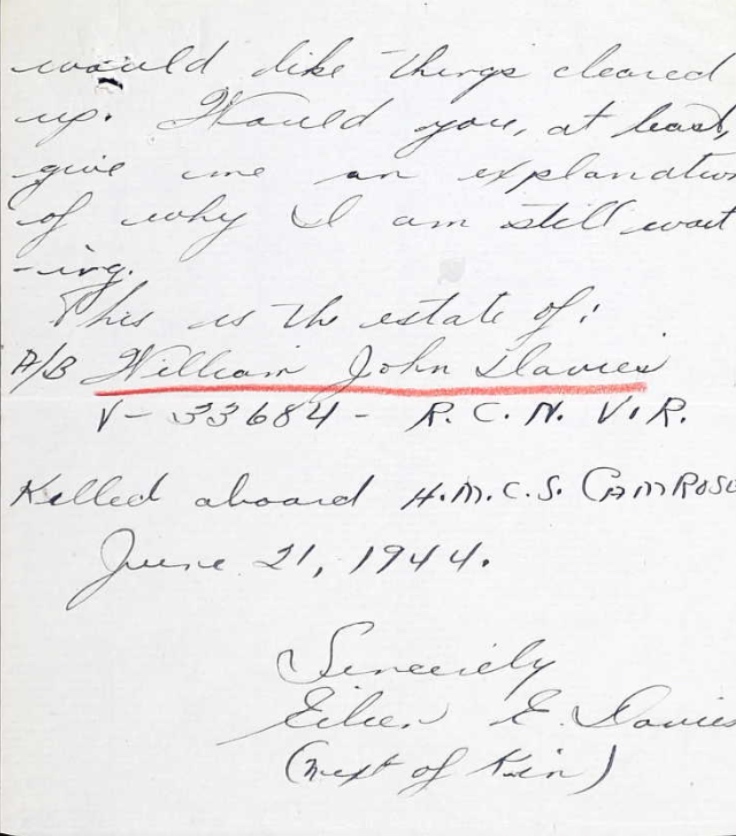 would like things cleared
up. Would you, at least,
give me an explanation
of why I am still wait
-ing.
This is the estate of:
A/B William John Davies
V - 33684 - R.C.N.V.R.
Killed aboard H.M.C.S. CAMROSE
June 21, 1944.
Sincerely
Eileen E. Davies
(next of kin)